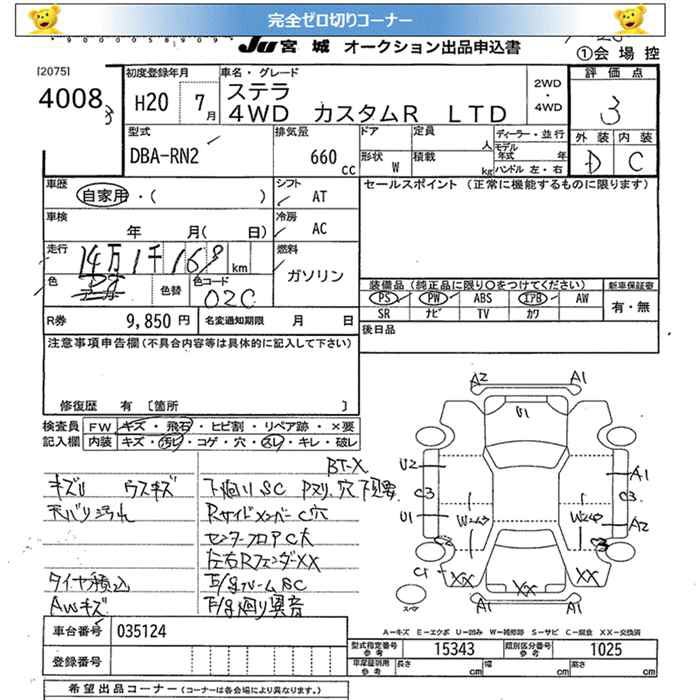 完全ゼロ切りコーナー
JU 宮城 オークション出品申込書
①会場控
[2075]
4008
初度登録年月
H20 7月
車名・グレード
ステラ
4WD カスタムR LTD
2WD
・
4WD
評価点
3
外装 内装
D C
型式
DBA-RN2
排気量
660 cc
ドア
定員 人
形状 W
積載 kg
ディーラー・並行
モデル年式 年
ハンドル 左・右
車歴
自家用・( )
シフト
AT
セールスポイント (正常に機能するものに限ります)
車検
年 月( 日)
冷房
AC
走行
14万1千168km
燃料
ガソリン
色
色替
色コード
02C
装備品(純正品に限り○をつけてください)
新車保証書
PS PW ABS エアB AW
有・無
SR ナビ TV カワ
R券 9,850円
名変通知期限 月 日
後日品
注意事項申告欄(不具合内容等は具体的に記入して下さい)
修復歴 有 〔箇所 〕
検査員 FW キズ・飛石・ヒビ割・リペア跡・×要
記入欄 内装 キズ・汚れ・コゲ・穴・スレ・キレ・破レ
BT-X
キズU ウスキズ
天バリ汚れ
タイヤ積込
AWキズ
下廻りSC Pスリ、穴
RサイドメンバーC穴
センターフロアC大
左右RフェンダーXX
A2 A1
U1
U2 A1
C3 C3
U1 A2
W2
C1 XX XX XX
A1 A1
スペア
A-キズ E-エクボ U-凹み W-補修跡 S-サビ C-腐食 XX-交換済
車台番号 035124
登録番号
型式指定番号 参考 15343
類別区分番号 参考 1025
車庫証明用 参考 長さ cm 幅 cm 高さ cm
希望出品コーナー (コーナーは各会場により異なります。)